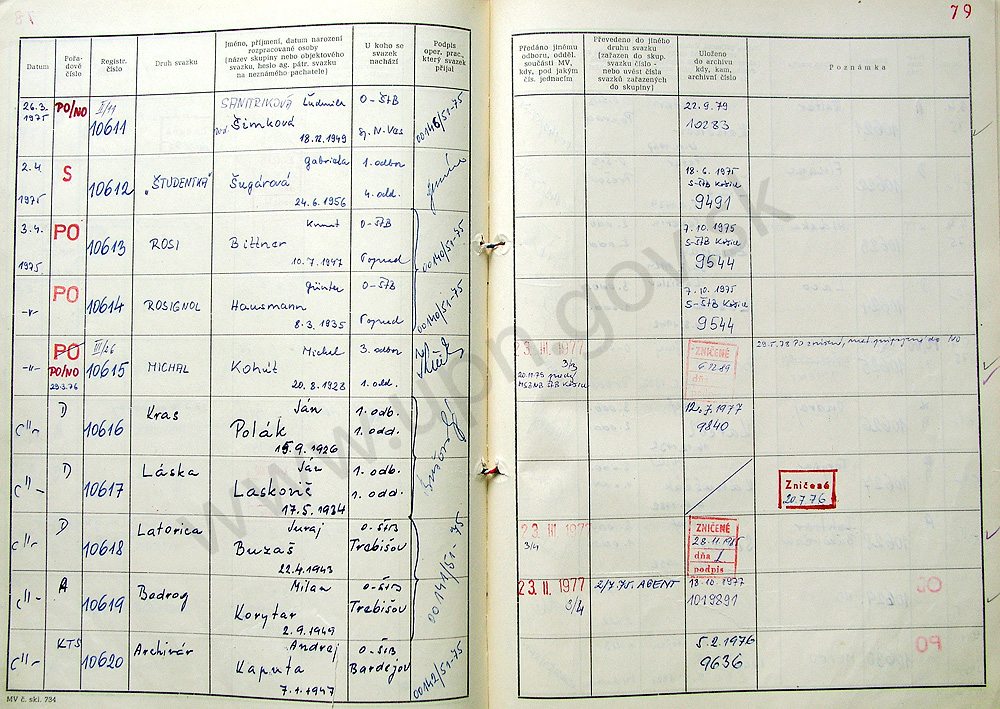 79
Datum
Pořadové číslo
Registr. číslo
Druh svazku
Jméno, příjmení, datum narození
rozpracované osoby
(název skupiny nebo objektového
svazku, heslo ag. pátr. svazku
na neznámého pachatele)
U koho se
svazek
nachází
Podpis
oper. prac.,
který svazek
přijal
Předáno jinému
odboru, odděl.
součásti MV,
kdy, pod jakým
čís. jednacím
Převedeno do jiného
druhu svazku
(zařazen do skup.
svazku číslo -
nebo uvést čísla
svazků zařazených
do skupiny)
Uloženo
do archivu
kdy, kam,
archivní číslo
Poznámka
26.3. 1975 PO/NO 10611
SANITRIKOVÁ Ľudmila
Šimková
18.12.1949
O-ŠtB
Sp. N. Ves
00146/51-75
22.9.79
10283
2.4 1975 S 10612 "ŠTUDENTKA"
Gabriela
Šugárová
24.6.1956
1. odbor
4. odd.
18.6.1975
S-ŠtB Košice
9491
3.4. 1975 PO 10613 ROSI
Bittner
10.7.1947
O-ŠtB
Poprad
00140/51-75
7.10.1975
S-ŠtB Košice
9544
-"- PO 10614 ROSIGNOL
Günter
Hausmann
8.3.1935
O-ŠtB
Poprad
00140/51-75
7.10.1975
S-ŠtB Košice
9544
-"- PO PO/NO 29.3.76 III/26 10615 MICHAL
Michal
Kohút
20.8.1928
3. odbor
1. odd.
23. III. 1977
3/3
ZNIČENÉ
dň
-"- D 10616 Kras
Ján
Polák
15.9.1926
1. odb.
1. odd.
12.7.1977
9840
-"- D 10617 Láska
Ján
Laskovič
17.5.1934
1. odb.
1. odd.
Zničené
20.7.76
-"- D 10618 Latorica
Juraj
Buzáš
22.4.1943
O-ŠtB
Trebišov
00141/51-75
23. III 1977
3/4
ZNIČENÉ
dňa
podpis
-"- A 10619 Bodrog
Milan
Korytár
2.9.1949
O-ŠtB
Trebišov
23. II. 1977
3/4
2/7.75. AGENT
18.10.1977
-"- KTS 10620 Archivár
Andrej
Kaputa
7.1.1947
O-ŠtB
Bardejov
00142/51-75
5.2.1976
9636
MV č. skl. 734
www.upn.gov.sk